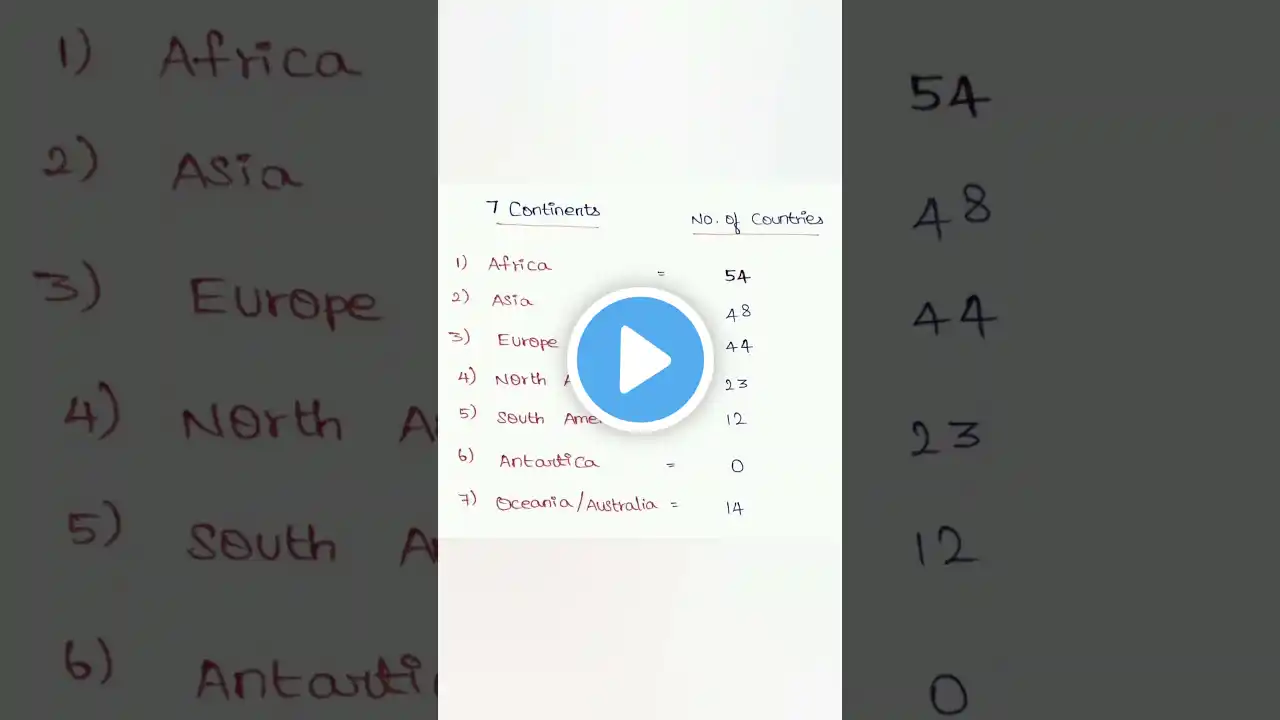 7 Continents No. of Countries
1) Africa = 54
2) Asia 48
3) Europe 44
4) North 23
5) South 12
6) Antartica = 0
7) Oceania/Australia = 14
1) Africa 54
2) Asia 48
3) Europe 44
4) North 23
5) South 12
6) 0